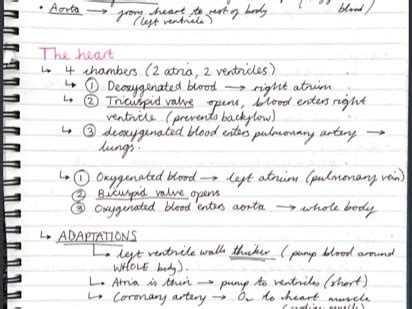 • Aorta → from heart to rest of body
(left ventricle)
blood)
The heart
↳ 4 chambers (2 atria, 2 ventricles)
↳ ① Deoxygenated blood → right atrium
↳ ② Tricuspid valve opens, blood enters right
ventricle (prevents backflow)
↳ ③ deoxygenated blood enters pulmonary artery →
lungs.
↳ ① Oxygenated blood → left atrium (pulmonary vein)
② Bicuspid valve opens
③ Oxygenated blood enters aorta → whole body
↳ ADAPTATIONS
↳ left ventricle walls thicker (pump blood around
WHOLE body).
↳ Atria is thin → pump to ventricles (short)
↳ Coronary artery → O₂ to heart muscle